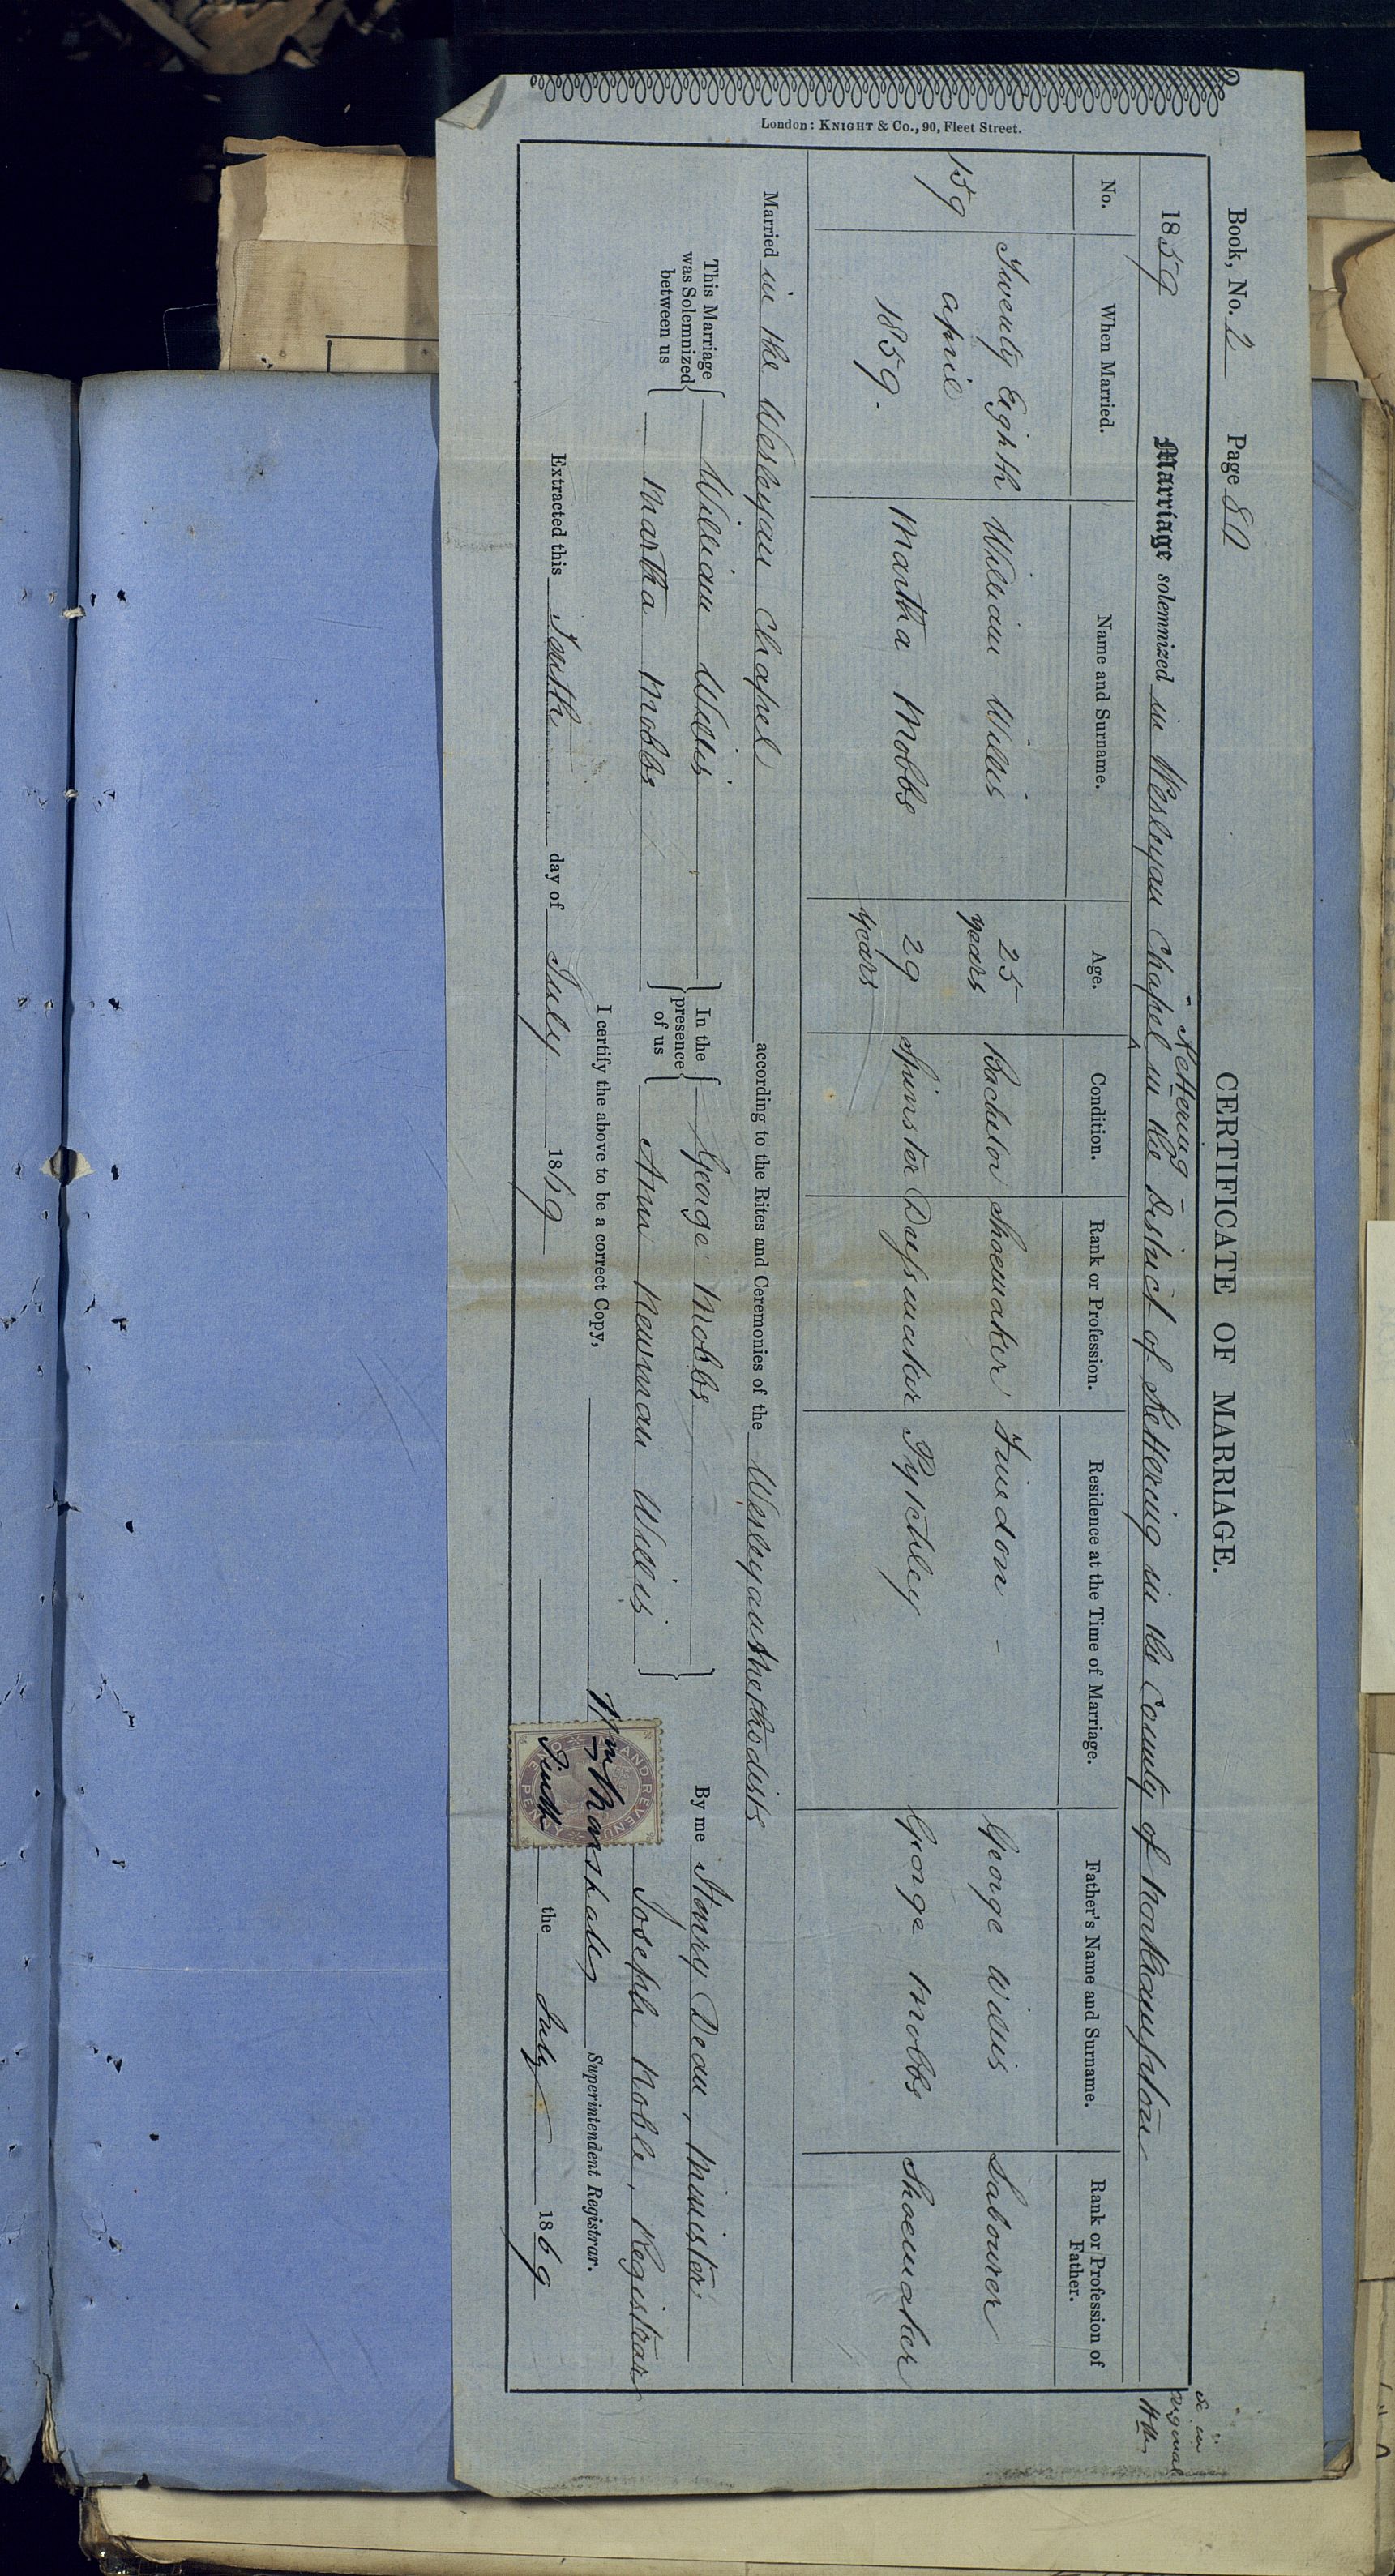 London: KNIGHT & Co., 90, Fleet Street.
Book, No. 2 Page 80
CERTIFICATE OF MARRIAGE.
- Kettering -
1859 Marriage solemnized in Wesleyan Chapel ^ in the District of Kettering in the County of Northampton
So in
original
No. When Married. Name and Surname. Age. Condition. Rank or Profession. Residence at the Time of Marriage. Father's Name and Surname. Rank or Profession of Father.
159 Twenty Eighth April 1859. William Willis 25 years Bachelor Shoemaker Finedon - George Willis Labourer
Martha Mobbs 29 years Spinster Dressmaker Pytchley George Mobbs Shoemaker
Married in the Wesleyan Chapel according to the Rites and Ceremonies of the Wesleyan Methodists
This Marriage was Solemnized between us { William Willis } In the presence of us { George Mobbs } By me Henry Dean, Minister
Martha Mobbs Ann Newman Willis Joseph Noble, Registrar
I certify the above to be a correct Copy, Wm Marshall Superintendent Registrar.
Extracted this Tenth day of July 1869 Tenth the July 1869
INLAND REVENUE
PENNY